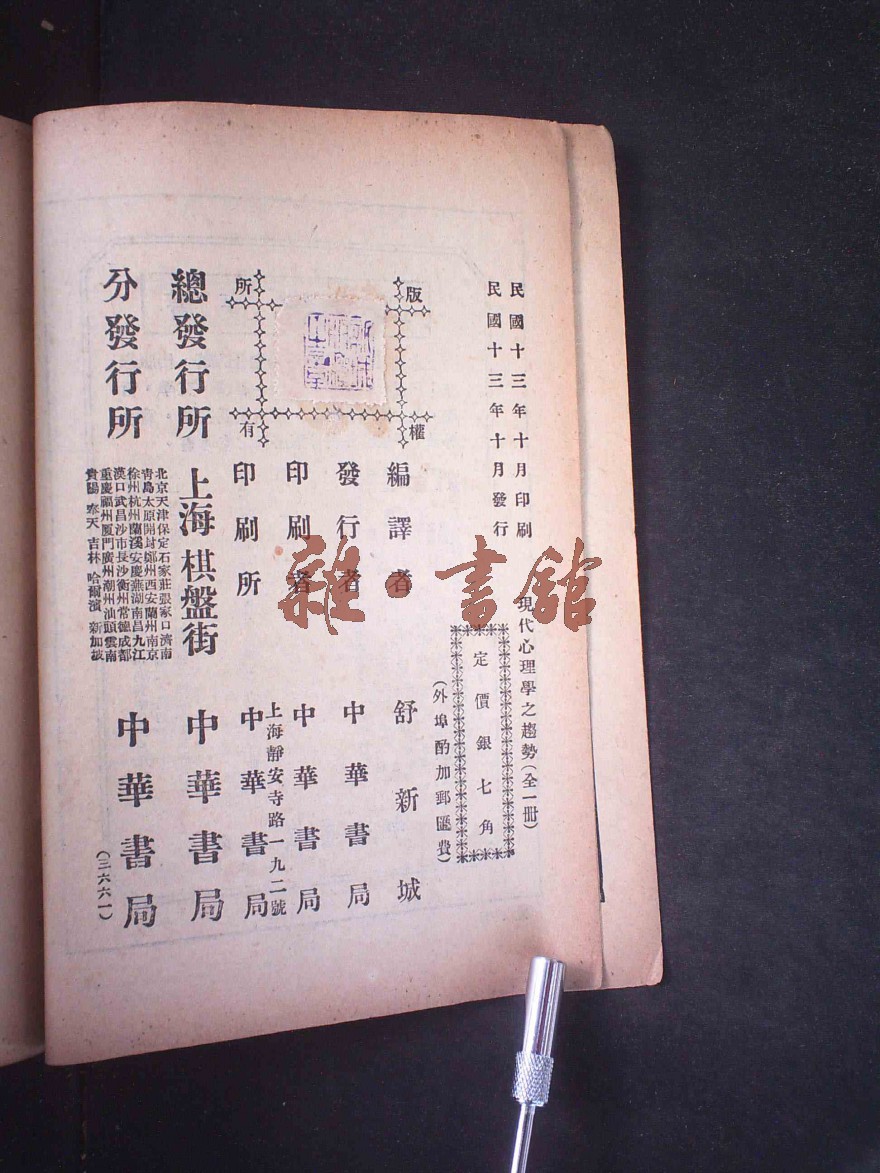 民國十三年十月印刷
民國十三年十月發行
現代心理學之趨勢(全一冊)
定價銀七角
(外埠酌加郵匯費)
版權所有
編譯者 舒新城
發行者 中華書局
印刷者 中華書局
上海靜安寺路一九二號
印刷所 中華書局
總發行所 上海棋盤街 中華書局
分發行所
北京天津保定石家莊張家口濟南
青島太原開封鄭州西安蘭州南京
徐州杭州蘭溪安慶蕪湖南昌九江
漢口武昌沙市長沙衡州常德成都
重慶福州厦門廣州潮州汕頭雲南
貴陽 奉天 吉林 哈爾濱 新加坡
中華書局
(三六六一)
雜·書館